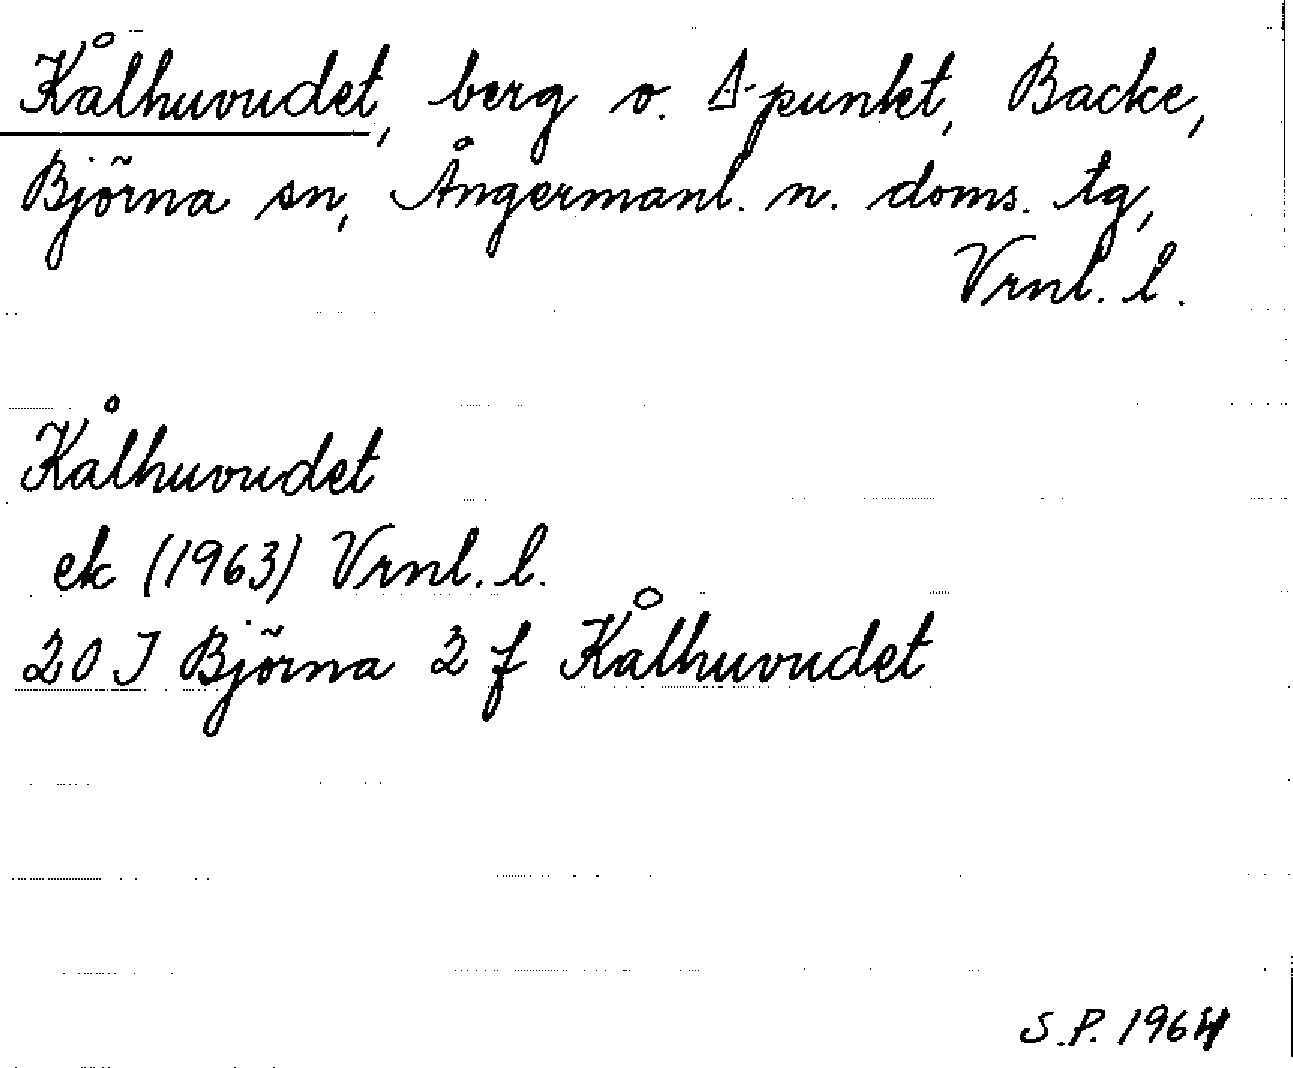 Kålhuvudet, berg o. Δ-punkt, Backe,
Björna sn, Ångermanl. n. doms. tg,
Vrnl. l.
Kålhuvudet
ek (1963) Vrnl. l.
20 I Björna 2 f Kålhuvudet
S.P. 1964